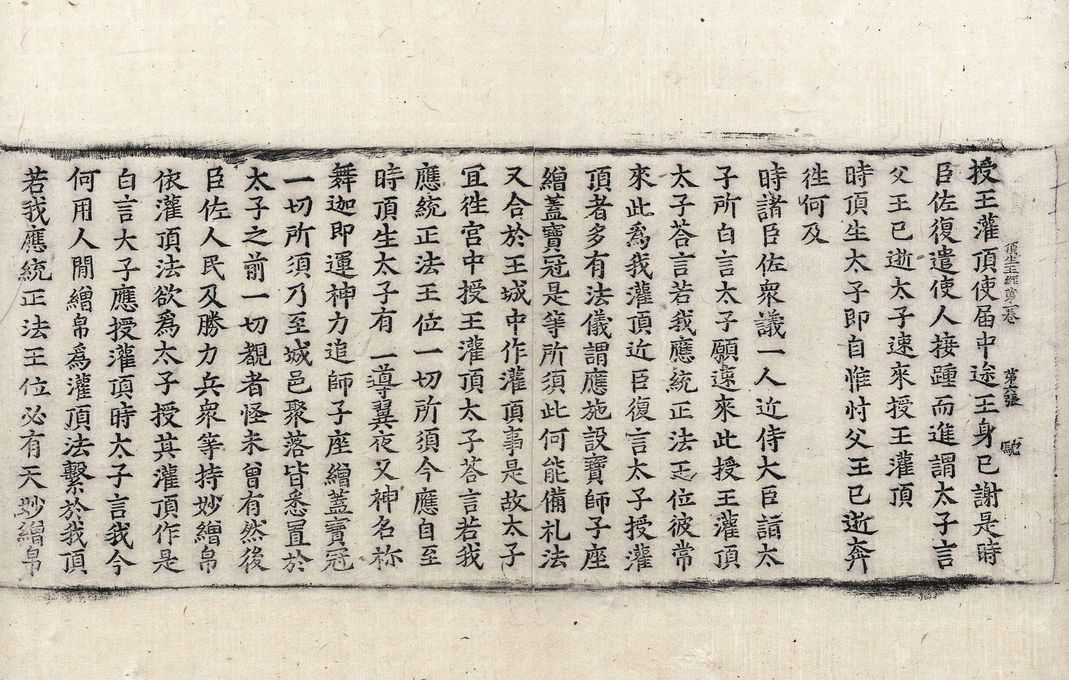 頂生王經第一卷　第六張　馳
授王灌頂使届中途王身已謝是時
臣佐復遣使人接踵而進謂太子言
父王已逝太子速來授王灌頂
時頂生太子即自惟忖父王已逝奔
徃何及
時諸臣佐衆議一人近侍大臣詣太
子所白言太子願速來此授王灌頂
太子荅言若我應統正法王位彼常
來此爲我灌頂近臣復言太子授灌
頂者多有法儀謂應施設寶師子座
繒蓋寶冠是等所須此何能備礼法
又合於王城中作灌頂事是故太子
宜徃宮中授王灌頂太子荅言若我
應統正法王位一切所須今應自至
時頂生太子有一導翼夜叉神名祢
舞迦即運神力追師子座繒蓋寶冠
一切所須乃至城邑聚落皆悉置於
太子之前一切覩者怪未曾有然後
臣佐人民及勝力兵衆等持妙繒帛
依灌頂法欲爲太子授其灌頂作是
白言大子應授灌頂時太子言我今
何用人閒繒帛爲灌頂法繫於我頂
若我應統正法王位必有天妙繒帛